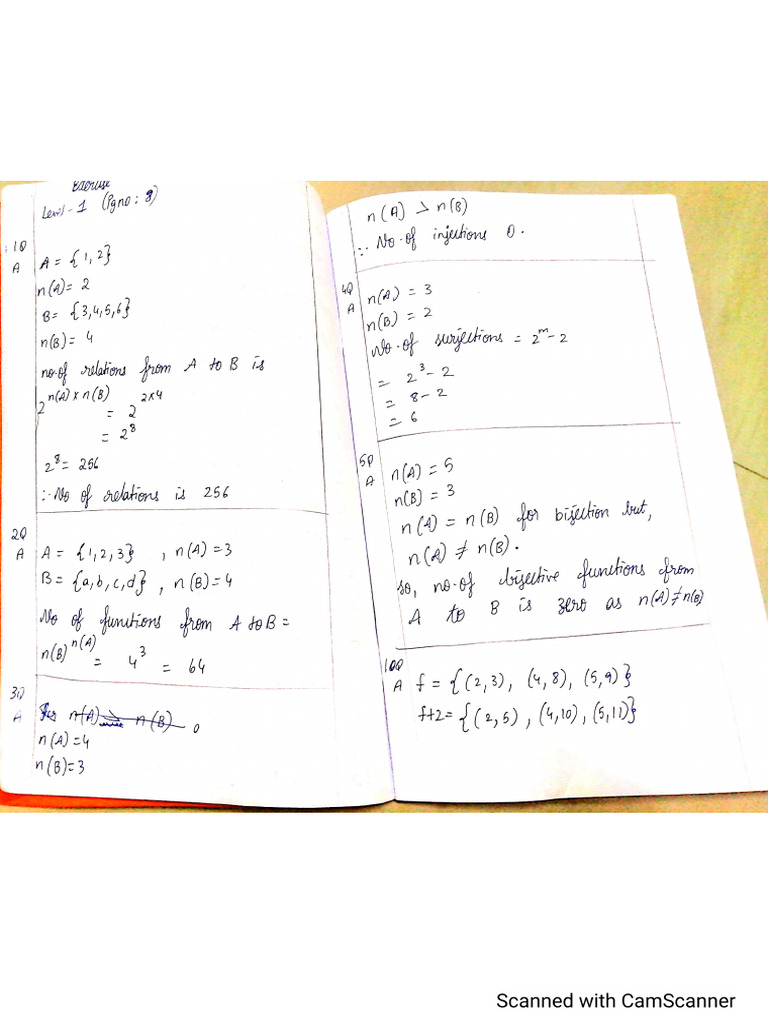 Exercise
Level - 1 (Pg no: 8)
1Q
A A = {1, 2}
n(A) = 2
B = {3,4,5,6}
n(B) = 4
no.of relations from A to B is
2^n(A) x n(B) = 2^2x4
= 2^8
2^8 = 256
∴ No of relations is 256
2Q
A A = {1, 2, 3} , n(A) = 3
B = {a, b, c, d} , n(B) = 4
No of functions from A to B =
n(B)^n(A) = 4^3 = 64
3Q
A For n(A) > n(B) 0
n(A) = 4
n(B) = 3
n(A) > n(B)
∵ No.of injections 0.
4Q
A n(A) = 3
n(B) = 2
No.of surjections = 2^m - 2
= 2^3 - 2
= 8 - 2
= 6
5Q
A n(A) = 5
n(B) = 3
n(A) = n(B) for bijection but,
n(A) ≠ n(B).
so, no.of bijective functions from
A to B is zero as n(A) ≠ n(B)
10Q
A f = {(2,3), (4,8), (5,9)}
f+2 = {(2,5), (4,10), (5,11)}
Scanned with CamScanner